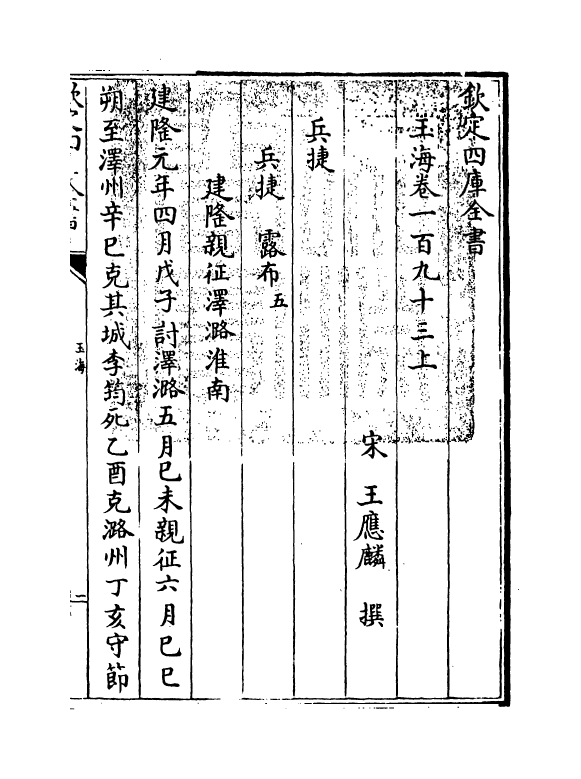 欽定四庫全書
玉海卷一百九十三上
宋 王應麟 撰
兵捷
兵捷 露布五
建隆親征澤潞淮南
建隆元年四月戊子討澤潞五月巳未親征六月巳巳
朔至澤州辛巳克其城李筠死乙酉克潞州丁亥守節
玉海